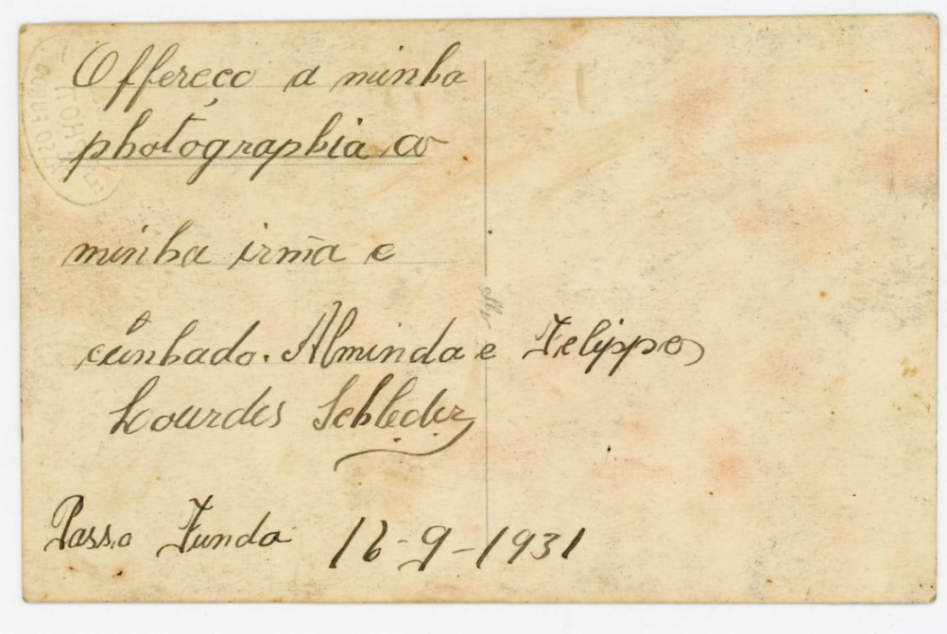 Offereço a minha
photographia a
minha irmã e
cunhado. Alminda e Felippe
Lourdes Schleder
Passo Fundo 16-9-1931